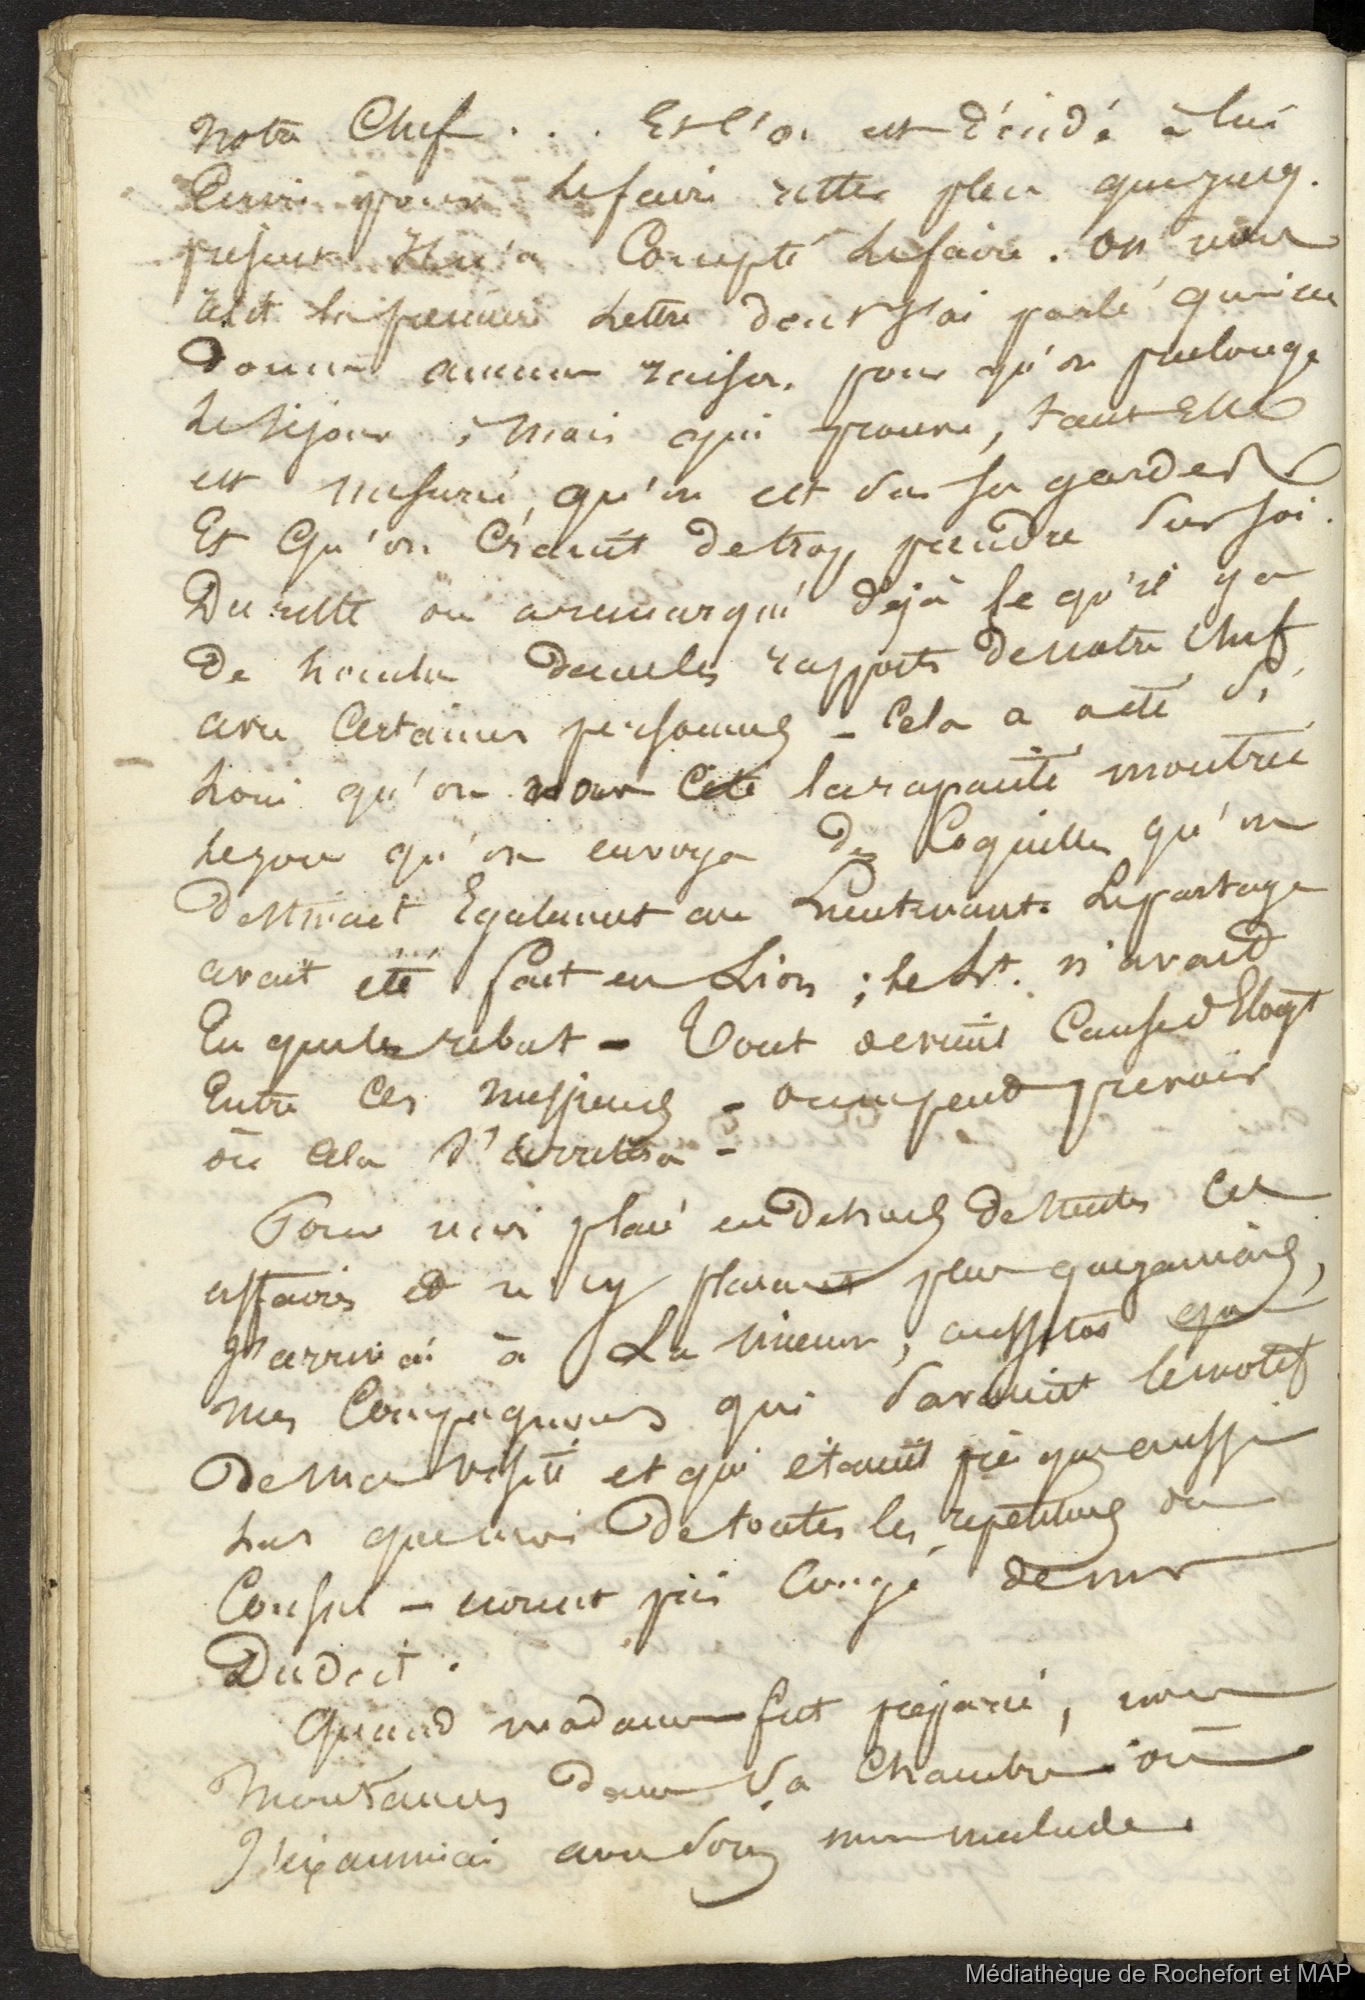 notre Chef . . . Et l'on est décidé à lui
Ecrire pour le faire rester plus que jusq.
présent Il n'a Compté le faire. On nous
lit la première Lettre dont j'ai parlé qui ne
donne aucune raison pour qu'on prolonge
le séjour, mais qui prouve, tant Elle
est mesurée, qu'on est sur ses gardes
Et Qu'on Craint de trop prendre sur soi.
Du reste on a remarqué déjà ce qu'il y a
de louche dans les rapports de notre Chef
avec Certaines personnes - Cela a été si
loin qu'on nous Cite la rapacité montrée
le jour qu'on envoya des Coquilles qu'on
destinait Egalement au Lieutenant. Le partage
avait été fait en Lion ; le Lt. n'avait
Eu que le rebut - Tout devient Cause d'
Entre ces messieurs - on ne peut prévoir
où cela s'arrêtera -
Pour moi placé en dehors de toutes ces
affaires et n'y prenant plus que jamais,
J'arrivai à La mienne, aussitôt que
mes Compagnons qui savaient le motif
de ma visite et qui étaient presque aussi
las que moi de toutes les répétitions du
Consul - eurent pris Congé de mr
Dudoit.
Quand madame fut préparée, nous
Montames dans sa Chambre où
J'éxaminai avec soin mon malade.
Médiathèque de Rochefort et MAP